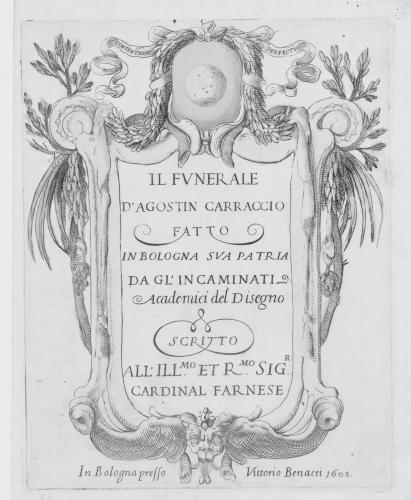 CONTENTIONE PERFECTUS
IL FVNERALE
D'AGOSTIN CARRACCIO
FATTO
IN BOLOGNA SVA PATRIA
DA GL'INCAMINATI
Academici del Disegno
SCRITTO
ALL'ILL.MO ET R.MO SIG.R
CARDINAL FARNESE
In Bologna presso Vittorio Benacci 1603.